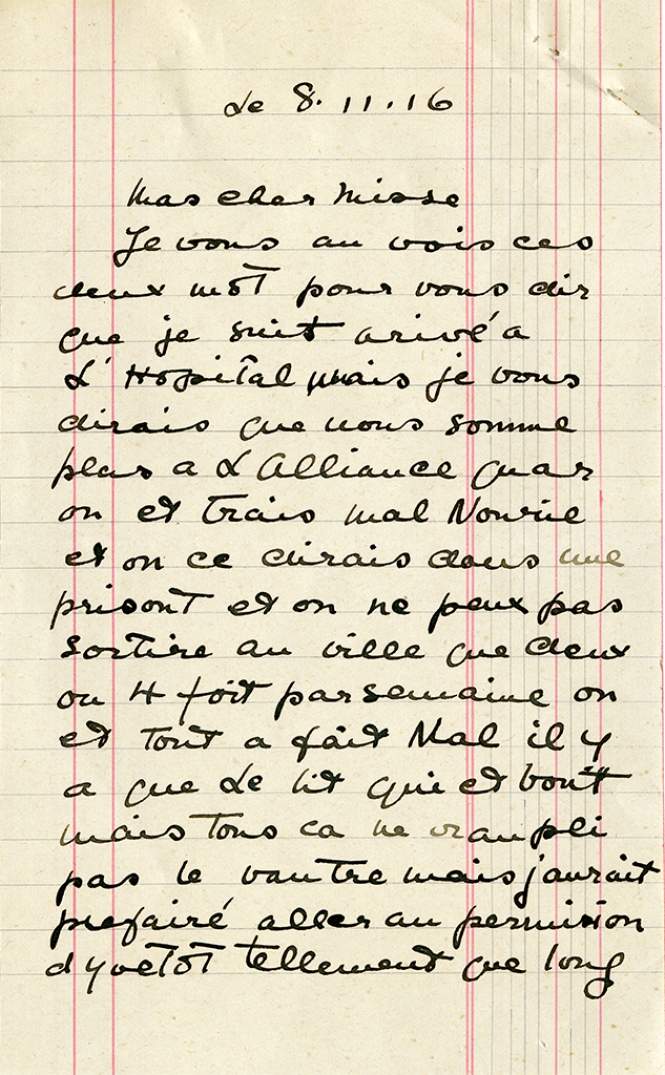 Le 8.11.16
Mas cher Misse
Je vous au vois ces
deux môt pour vous dir
que je suit arivé a
L'Hopital mais je vous
dirais que nous somme
plus a L Alliance quar
on et trais mal Nourie
et on ce dirais dans une
prisont et on ne peux pas
sortire au ville que deux
ou 4 foit par semaine on
et tout a fait Mal il y
a que Le lit qui et bont
mais tous ca ne ranpli
pas le vantre mais jaurait
prefairé aller au permision
d yvetôt tellement que long